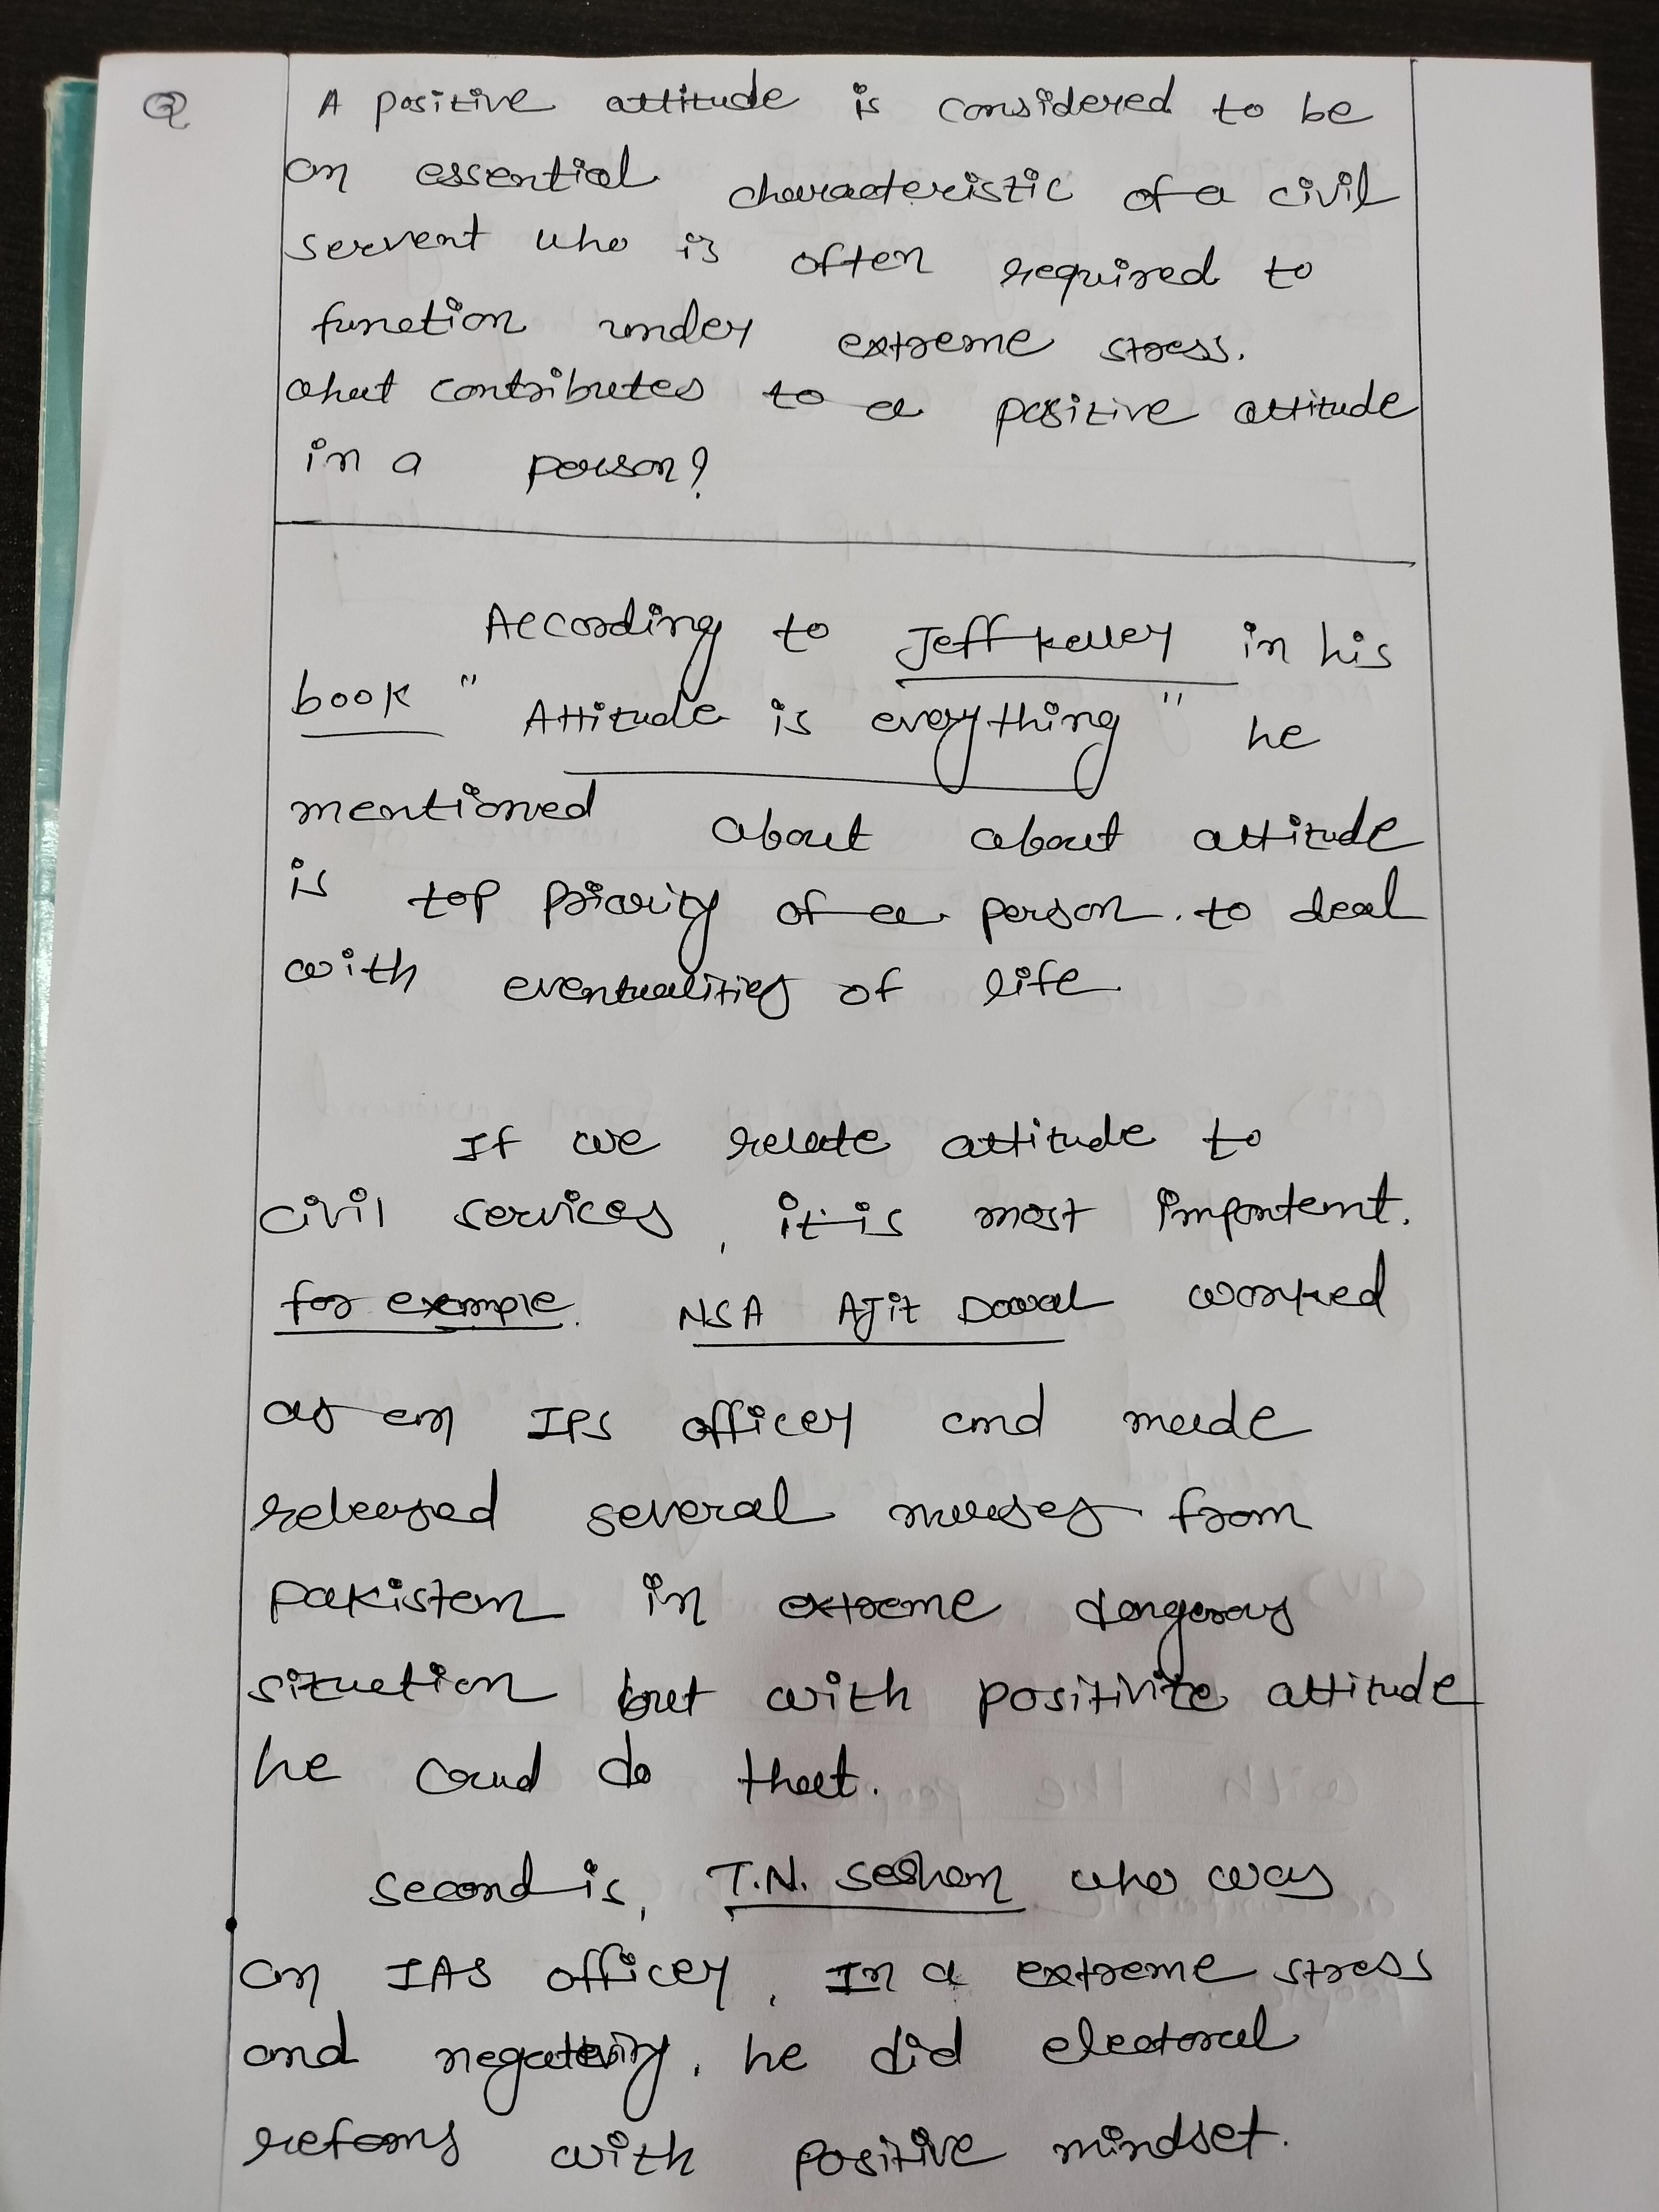 Q
A positive attitude is considered to be
an essential characteristic of a civil
servent who is often required to
function under extreme stress.
what contributes to a positive attitude
in a person?
According to Jeff kelley in his
book "Attitude is everything" he
mentioned about about attitude
is top priority of a person. to deal
with eventualities of life.
If we relate attitude to
civil services, it is most importent.
for exemple. NSA Ajit Doval worked
as an IPS officer and made
released several nurses from
Pakisten in extreme dangerous
situation but with positivite attitude
he coud do that.
Second is, T.N. Seshan who was
an IAS officer, In a extreme stress
and he did electoral
reforms with positive mindset.